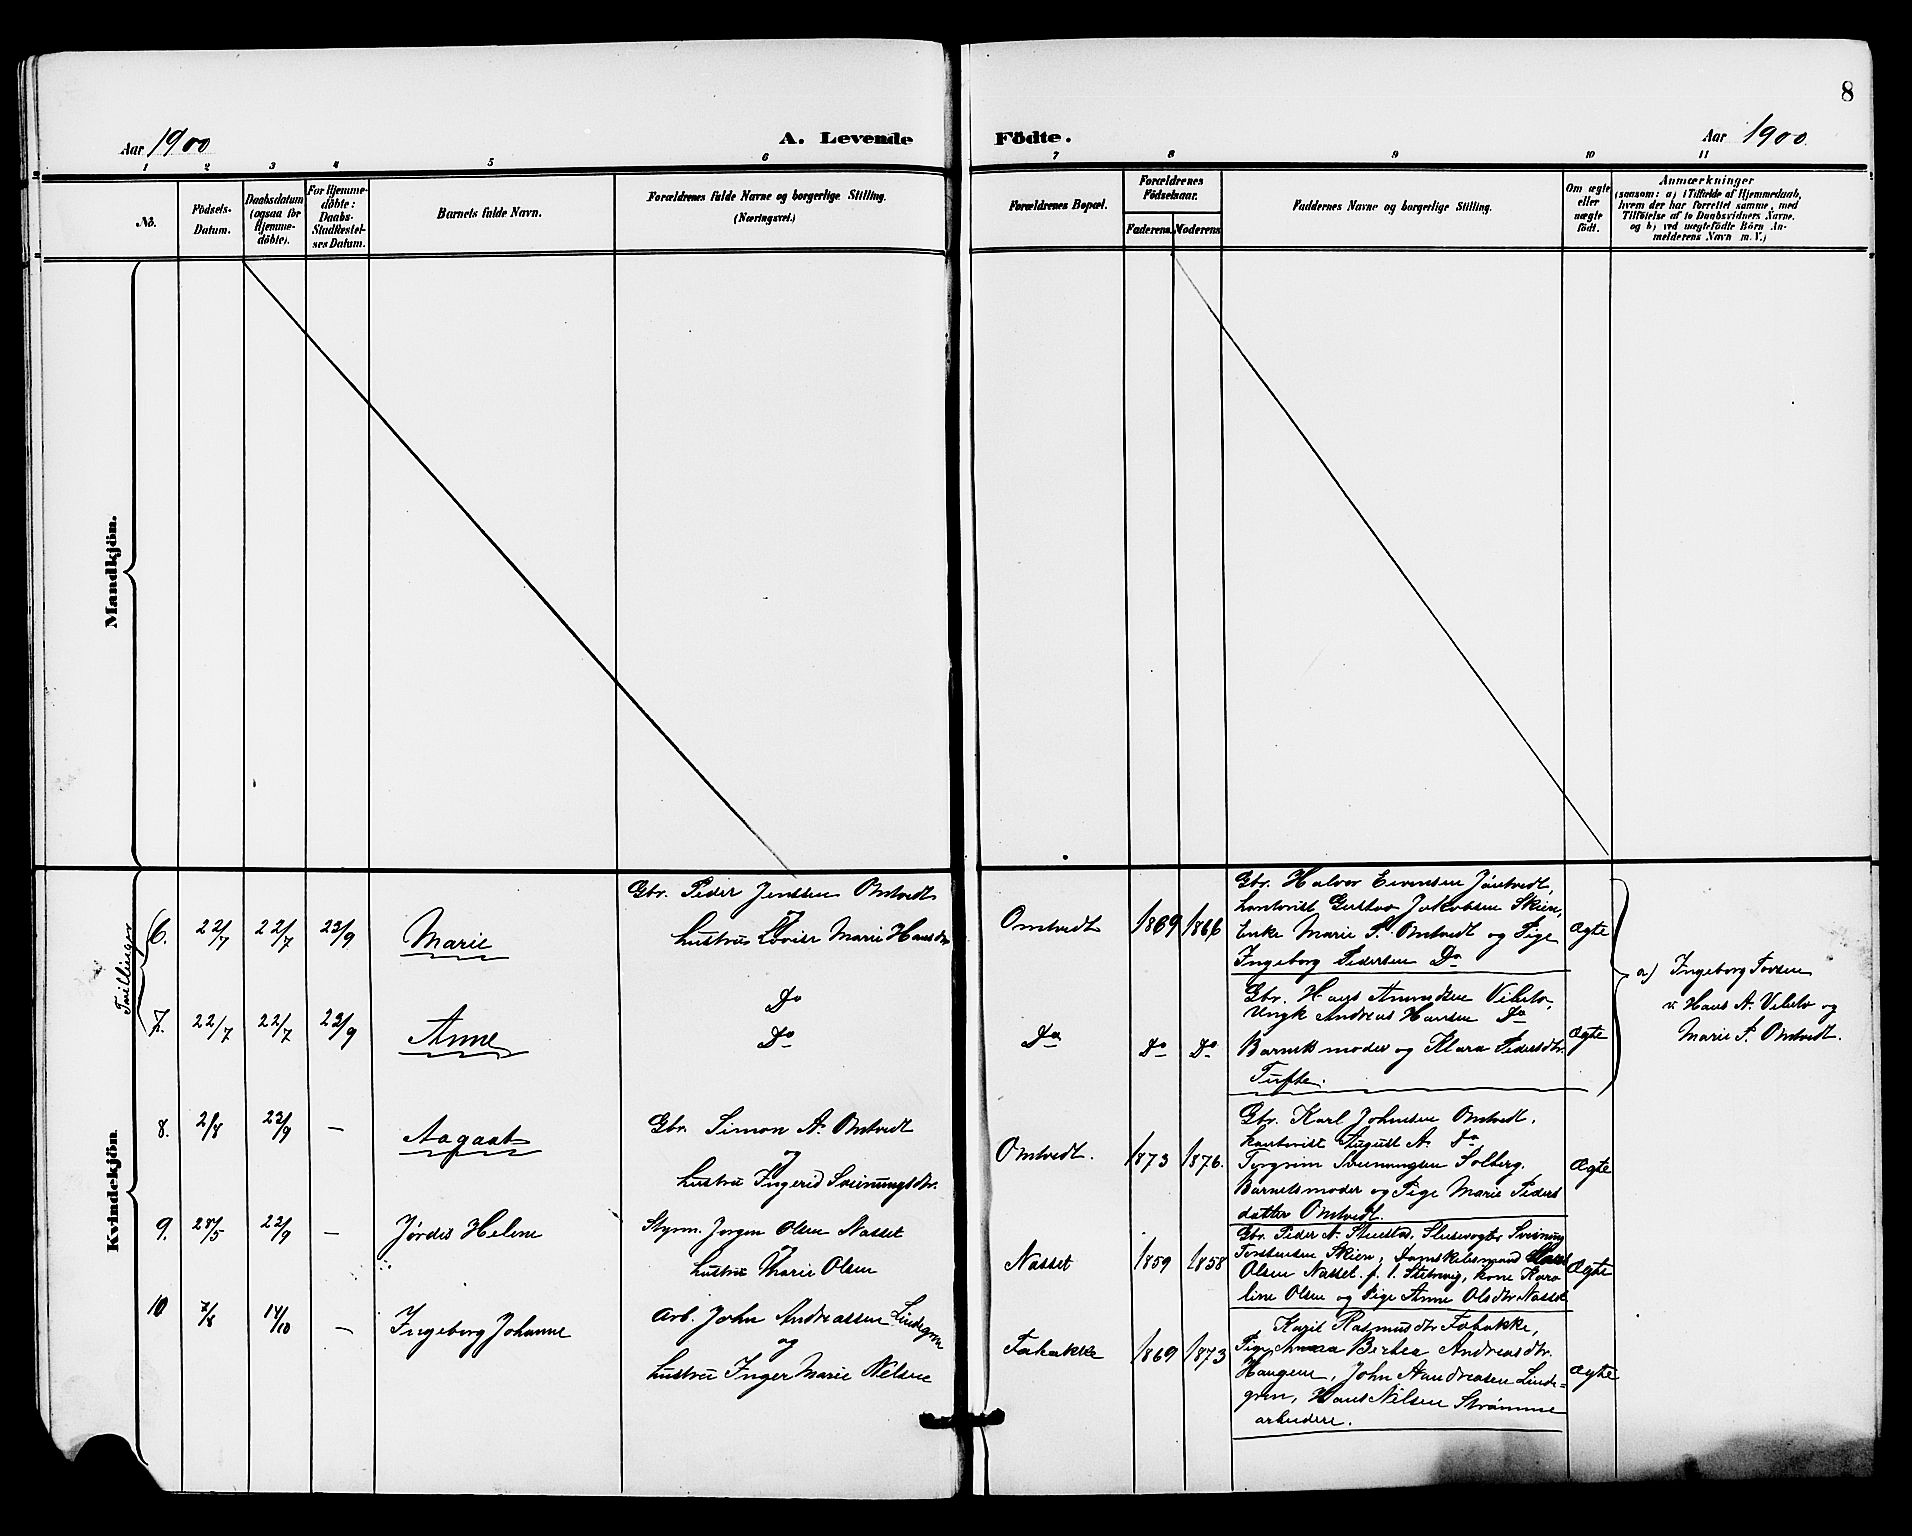 8
Aar 1900
A. Levende Födte.
Aar 1900.
1 2 3 4 5 6 7 8 9 10 11
No.
Födsels-
Datum.
Daabsdatum
(ogsaa for
Hjemme-
döbte).
For Hjemme-
döbte:
Daabs-
Stadfæstel-
ses Datum.
Barnets fulde Navn.
Forældrenes fulde Navne og borgerlige Stilling.
(Næringsvei.)
Forældrenes Bopæl.
Forældrenes
Födselsaar.
Faderens. Moderens
Faddernes Navne og borgerlige Stilling.
Om ægte
eller
uægte
födt.
Anmærkninger
(saasom: a) i Tilfælde af Hjemmedaab,
hvem der har forrettet samme, med
Tilföielse af to Daabsvidners Navne.
og b) ved uægtefödte Börn An-
melderens Navn m. V.)
Mandkjön.
Kvindekjön
Tvillinger
6. 22/7 22/7 23/9 Marie
Gbr. Peder Jenssen Omtvedt
og
hustru Lovise Marie Hansdtr
Omtvedt 1869 1866
Gbr. Halvor Evensen Jöntvedt,
kontorist Gustav Jakobsen Skien,
Enke Marie P. Omtvedt og Pige
Ingeborg Pedersen Do
Ægte
7. 22/7 22/7 23/9 Anne
Do
Do
Do Do Do
Gbr. Hans Amundsen Vibeto,
Ungk Andreas Hansen Do
Barnets moder og Klara Pedersdtr.
Tufte.
Ægte
a) Ingeborg Tovsen
v. Hans A. Vibeto og
Marie P. Omtvedt.
8. 2/8 23/9 — Aagaat
Gbr. Simon A. Omtvedt
og
hustru Ingerid Sveinungsdtr.
Omtvedt. 1873 1876.
Gbr. Karl Johnsen Omtvedt.
kontorist August A. Do
Torgrim Sveinungsen Solberg.
Barnetsmoder og Pige Marie Peders
datter Omtvedt.
Ægte
9. 28/5 23/9 — Jørdis Helene
Styrm. Jørgen Olsen Nasset
og
hustru Marie Olsen
Nasset 1859 1858
Gbr. Peder N. Slusevogter Sveinung
Torstensen Skien,
Olsen Nasset. kone Karo
line Olsen og Pige Anne Olsdtr Nasset
Ægte
10 7/8 14/10 — Ingeborg Johanne
Arb. John Andreassen Lindegren
og
hustru Inger Marie Nelsen
Fahakke 1869 1873
Rasmusdtr Fahakke,
Pige Anna Birtea Andreasdtr.
Haugene, John Aandreasen Linde-
gren, Hans Nilsen Strømme
arbeidere.
Ægte